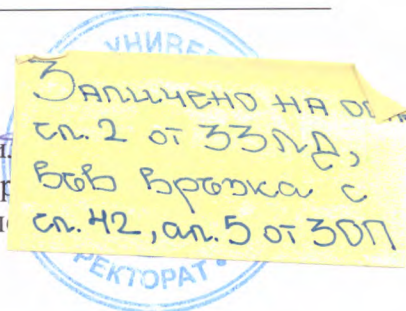 УНИВЕР
Заличено на ос
чл. 2 от ЗЗЛД,
във връзка с
чл. 42, ал. 5 от ЗОП
РЕКТОРАТ